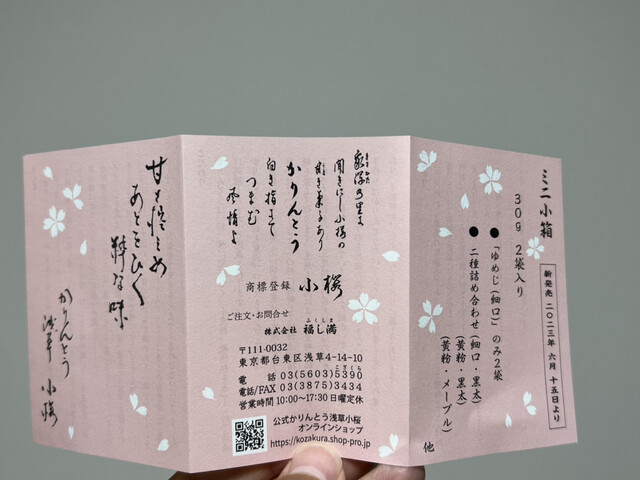 ミニ小箱
30g 2袋入り
新発売 二〇二三年 六月 十五日より
●「ゆめじ(細口)」のみ2袋
●二種詰め合わせ(細口・黒太)
(黄粉・黒太)
(黄粉・メープル)
他
聞きにし小桜の
かりんとう
白き指もて
つまむ
風情よ
商標登録 小桜
ご注文・お問合せ
株式会社 福し満
ふくしま
〒111-0032
東京都台東区浅草4-14-10
電 話 03(5603)5390
こざくら
電話/FAX 03(3875)3434
営業時間 10:00〜17:30 日曜定休
公式かりんとう浅草小桜
オンラインショップ
https://kozakura.shop-pro.jp
甘さ控え め
あとをひく
粋な味
かりんとう
浅草 小桜